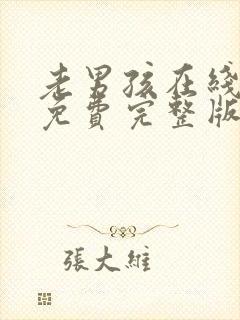 老男孩在线
免費完整版
張大維